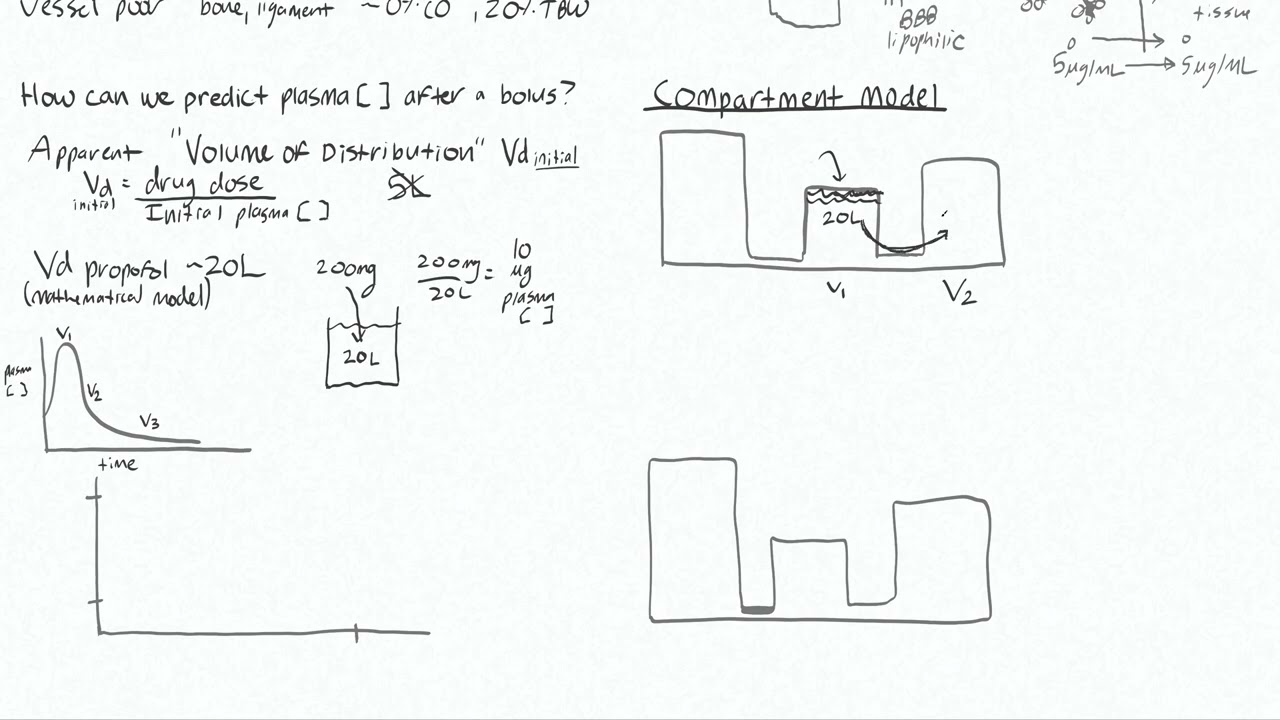 Vessel poor bone, ligament ~0% CO, 20% TBW
BBB
lipophilic
tissue
5µg/mL → 5µg/mL
How can we predict plasma [ ] after a bolus?
Apparent "Volume of Distribution" Vd initial
Vd initial = drug dose
Initial plasma [ ]
5L
Vd propofol ~20L
(mathematical model)
200mg
20L
200mg
20L
= 10
µg
plasma
[ ]
V1
V2
V3
plasma
[ ]
time
Compartment model
20L
V1
V2